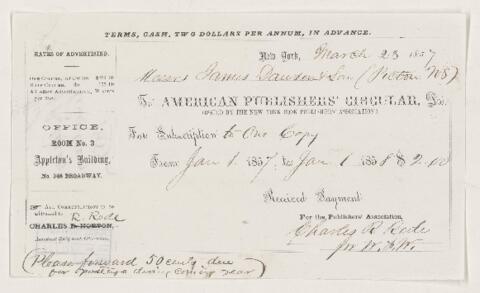 TERMS, CASH, TWO DOLLARS PER ANNUM, IN ADVANCE.
RATES OF ADVERTISING.
New York, March 23 1857
Messrs James Dawson & Son (Pictou N.S)
To AMERICAN PUBLISHERS' CIRCULAR, Dr.
(OWNED BY THE NEW YORK BOOK PUBLISHERS' ASSOCIATION.)
OFFICE,
ROOM No. 3
Appleton's Building,
No. 346 BROADWAY.
For Subscription to One Copy
From Jan 1. 1857, to Jan 1 1858 $ 2.00
Received Payment
For the Publishers' Association,
All Communications to be
addressed to
R. Rode
CHARLES B. NORTON,
Charles R. Rode
(Please forward 50 cents due
for postage during coming year)